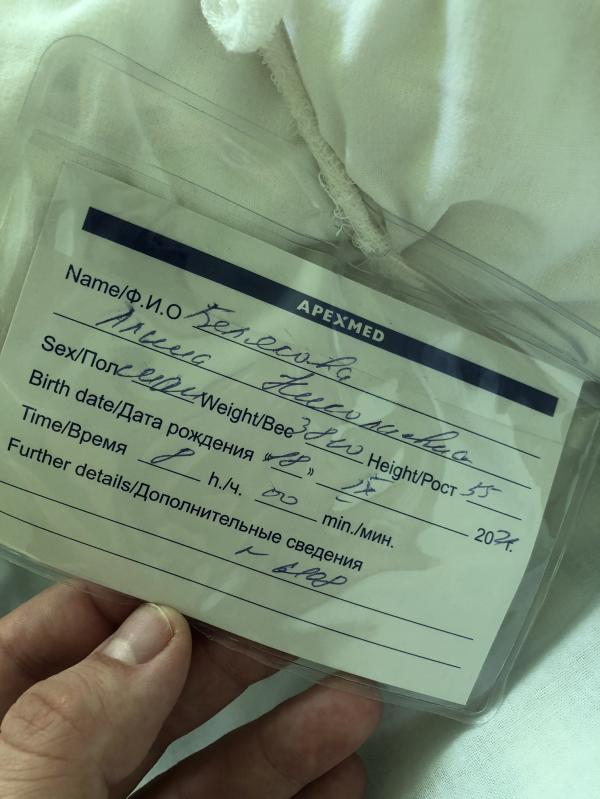 APEXMED
Name/Ф.И.О Белякова
Алина Николаевна
Sex/Пол Weight/Вес 3800 Height/Рост 55
Birth date/Дата рождения «18» IX 2021г.
Time/Время 8 h./ч. 00 min./мин.
Further details/Дополнительные сведения